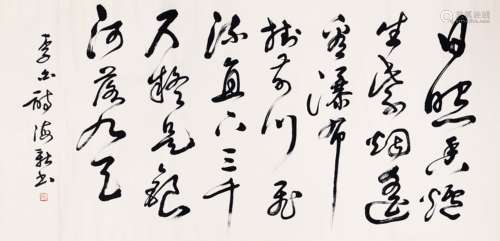 日照香爐
生紫烟遥
看瀑布
掛前川飛
流直下三千
尺疑是銀
河落九天
李白詩海书